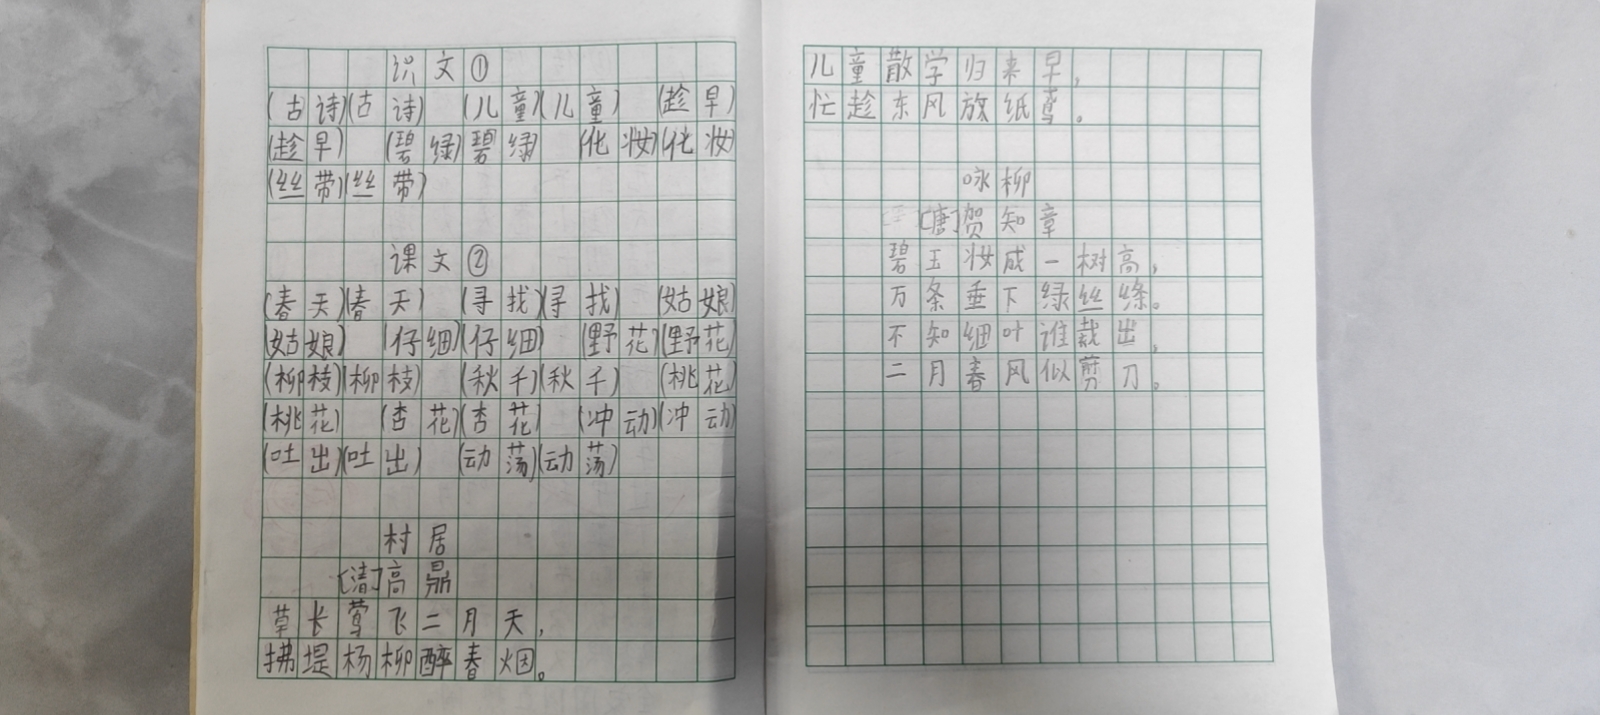 识文①
(古诗)(古诗) (儿童)(儿童) (趁早)
(趁早) (碧绿)(碧绿) (化妆)(化妆)
(丝带)(丝带)
课文②
(春天)(春天) (寻找)(寻找) (姑娘)
(姑娘) (仔细)(仔细) (野花)(野花)
(柳枝)(柳枝) (秋千)(秋千) (桃花)
(桃花) (杏花)(杏花) (冲动)(冲动)
(吐出)(吐出) (动荡)(动荡)
村居
[清]高鼎
草长莺飞二月天,
拂堤杨柳醉春烟。
儿童散学归来早,
忙趁东风放纸鸢。
咏柳
[唐]贺知章
碧玉妆成一树高,
万条垂下绿丝绦。
不知细叶谁裁出,
二月春风似剪刀。